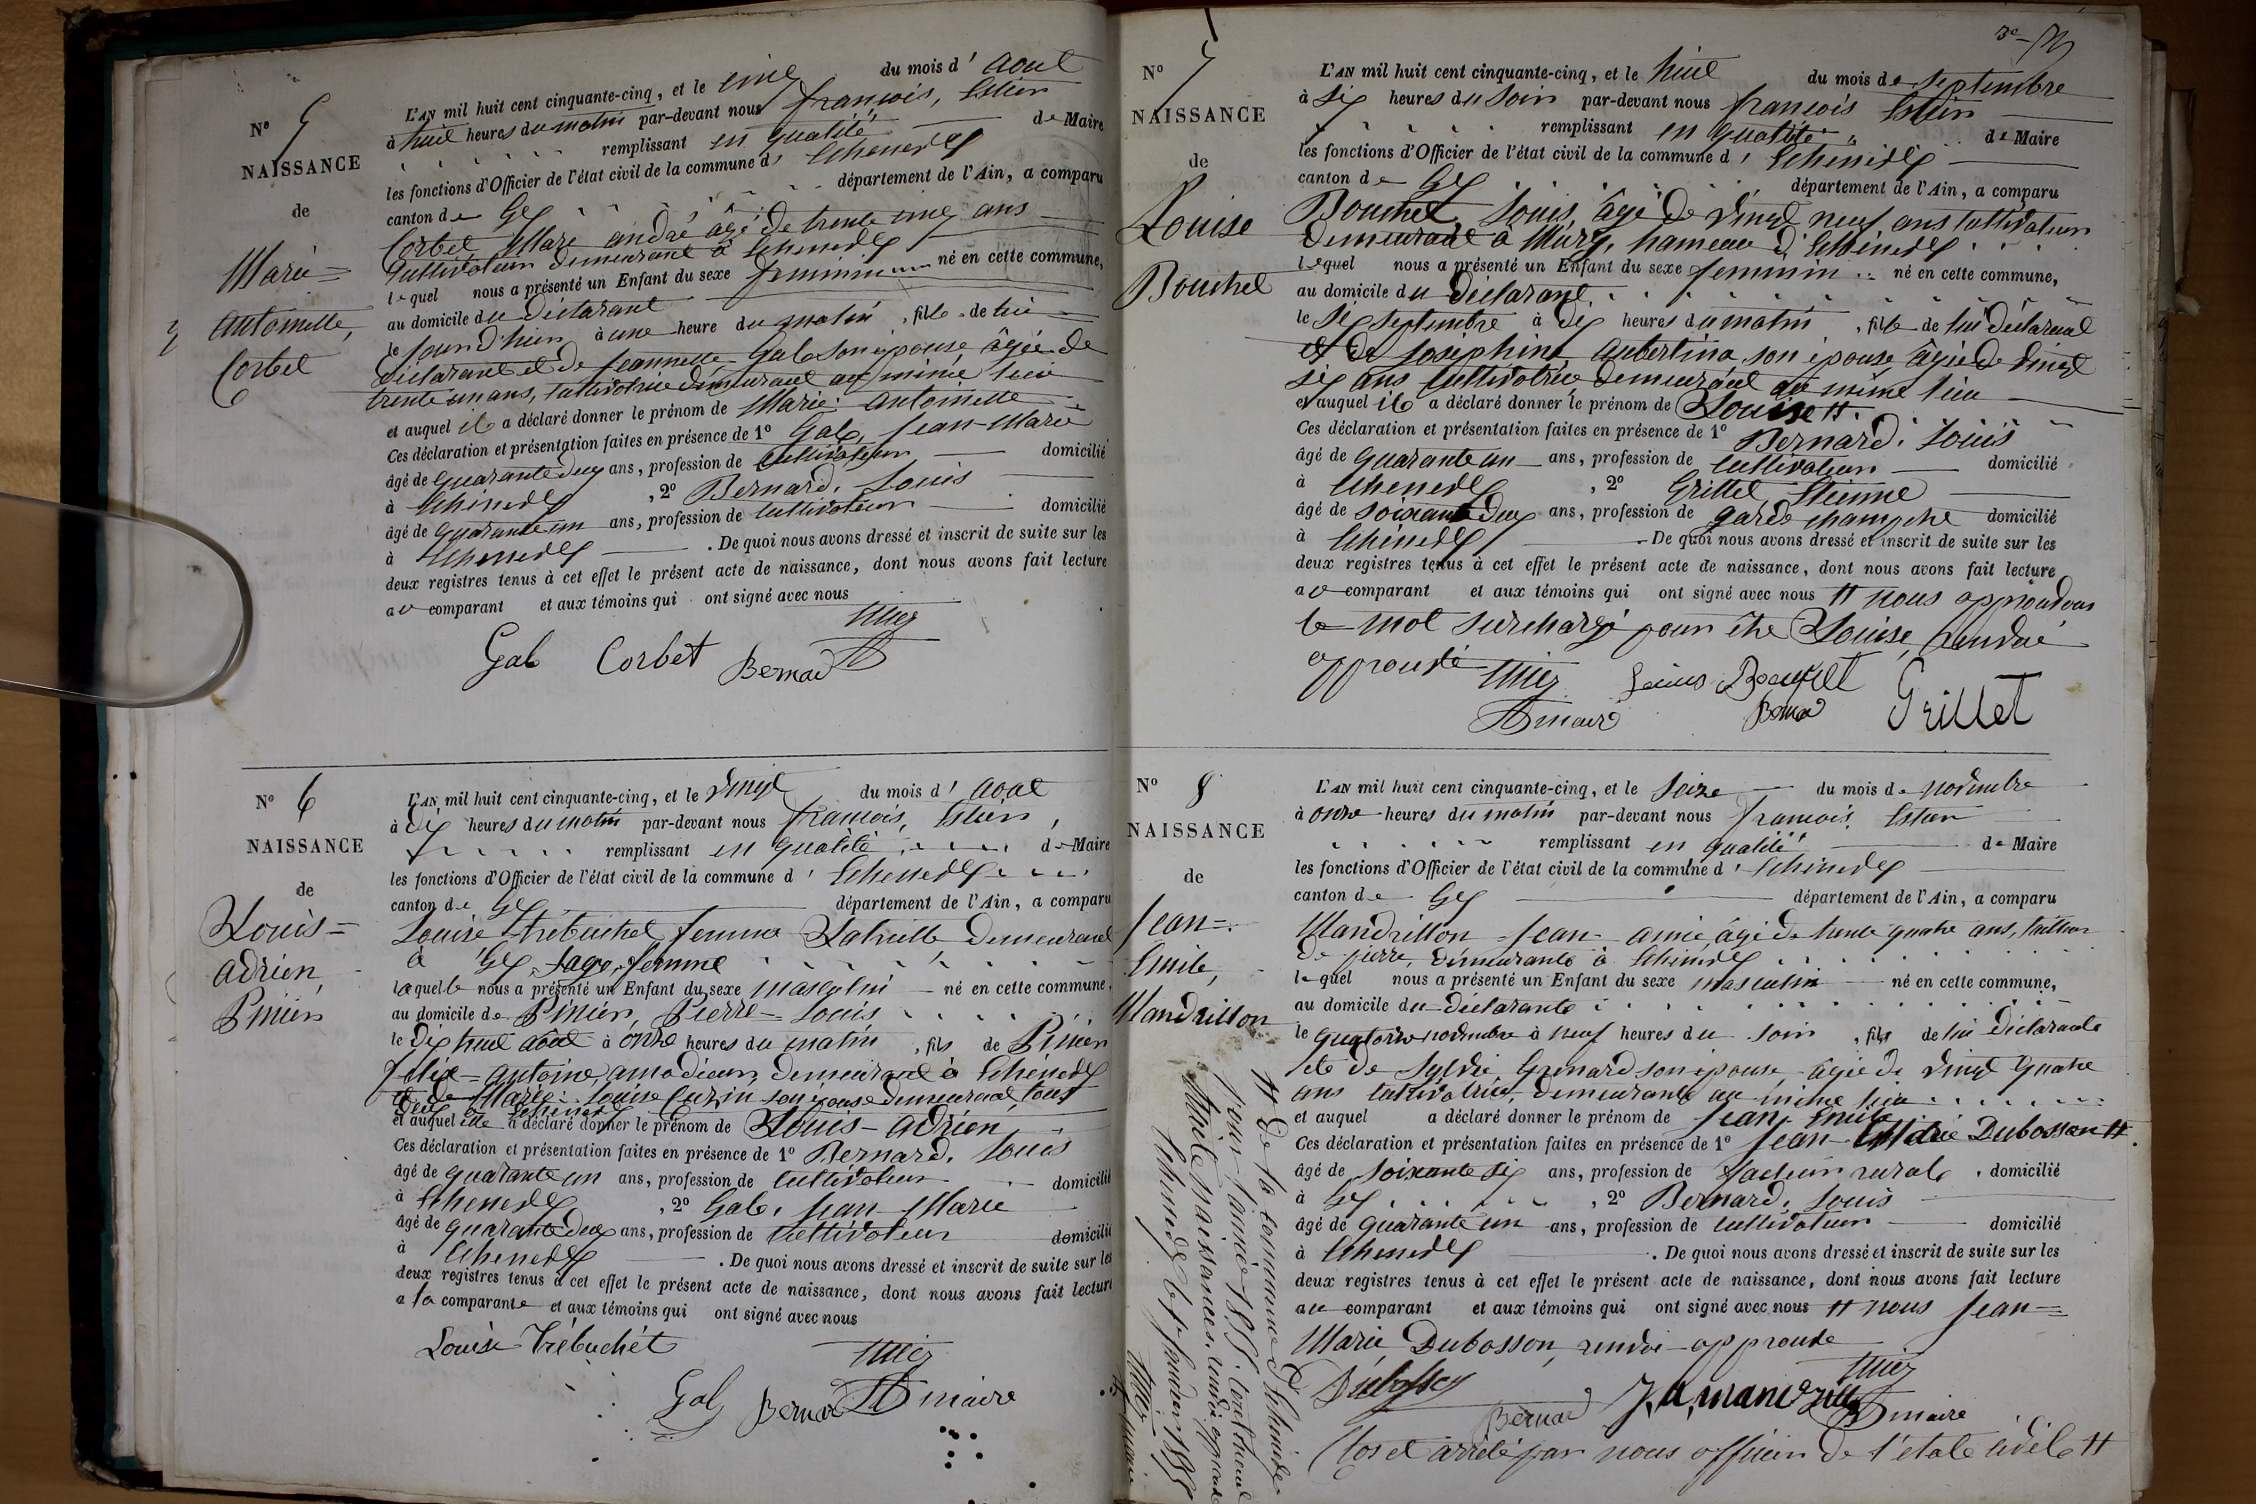 N° 5
NAISSANCE
de
Marie=
antoinette,
Corbet
L'AN mil huit cent cinquante-cinq, et le cinq du mois d' aout
à huit heures du matin par-devant nous françois,
remplissant en qualité de Maire
les fonctions d'Officier de l'état civil de la commune d' Echenevex
canton de Gex département de l'Ain, a comparu
Corbet Marc andré âgé de trente cinq ans
Cultivateur demeurant à Echenevex
lequel nous a présenté un Enfant du sexe feminin né en cette commune,
au domicile du déclarant
le jourd'hui à une heure du matin, fille de lui
déclarant et de Jeannette Gal son épouse âgée de
trente un ans, cultivatrice demeurant au même lieu
et auquel il a déclaré donner le prénom de Marie antoinette
Ces déclaration et présentation faites en présence de 1° Gal, Jean-Marie
âgé de quarante deux ans, profession de cultivateur domicilié
à Echenevex, 2° Bernard, Louis
âgé de quarante un ans, profession de cultivateur domicilié
à Echenevex. De quoi nous avons dressé et inscrit de suite sur les
deux registres tenus à cet effet le présent acte de naissance, dont nous avons fait lecture
au comparant et aux témoins qui ont signé avec nous
Gal Corbet Bernard
N° 6
NAISSANCE
de
Louis=
adrien,
Pinien
L'AN mil huit cent cinquante-cinq, et le vingt du mois d' aout
à dix heures du matin par-devant nous françois,
remplissant en qualité de Maire
les fonctions d'Officier de l'état civil de la commune d' Echenevex
canton de Gex département de l'Ain, a comparu
Louise Trébuchet femme demeurant
à Gex, sage femme
laquelle nous a présenté un Enfant du sexe masculin né en cette commune,
au domicile de Pinien, Pierre=Louis
le dix huit aout à onze heures du matin, fils de Pinien
félix=antoine, demeurant à Echenevex
et de Marie Louise son épouse demeurant tous
deux à Echenevex
et auquel elle a déclaré donner le prénom de Louis-adrien
Ces déclaration et présentation faites en présence de 1° Bernard, Louis
âgé de quarante un ans, profession de cultivateur domicilié
à Echenevex, 2° Gal, Jean Marie
âgé de quarante deux ans, profession de cultivateur domicilié
à Echenevex. De quoi nous avons dressé et inscrit de suite sur les
deux registres tenus à cet effet le présent acte de naissance, dont nous avons fait lecture
a la comparante et aux témoins qui ont signé avec nous
Louise Trébuchet
Gal Bernard maire
N° 7
NAISSANCE
de
Louise
Bouchet
L'AN mil huit cent cinquante-cinq, et le huit du mois de Septembre
à six heures du soir par-devant nous françois
remplissant en qualité de Maire
les fonctions d'Officier de l'état civil de la commune d' Echenevex
canton de Gex département de l'Ain, a comparu
Bouchet, Louis, âgé de vingt neuf ans cultivateur
demeurant à Mury, hameau d'Echenevex
lequel nous a présenté un Enfant du sexe feminin né en cette commune,
au domicile du déclarant
le six septembre à dix heures du matin, fille de lui déclarant
et de Joséphine aubertina son épouse âgée de vingt
six ans cultivatrice demeurant au même lieu
et auquel il a déclaré donner le prénom de Louise #.
Ces déclaration et présentation faites en présence de 1° Bernard, Louis
âgé de quarante un ans, profession de cultivateur domicilié
à Echenevex, 2° Grillet, Etienne
âgé de soixante deux ans, profession de garde champêtre domicilié
à Echenevex. De quoi nous avons dressé et inscrit de suite sur les
deux registres tenus à cet effet le présent acte de naissance, dont nous avons fait lecture
au comparant et aux témoins qui ont signé avec nous # nous approuvons
le mot surchargé pour être Louise, renvoi
approuvé Louis Bouchet
maire Bernard Grillet
N° 8
NAISSANCE
de
Jean=
Emile,
Mandrillon
L'AN mil huit cent cinquante-cinq, et le Seize du mois de novembre
à onze heures du matin par-devant nous françois
remplissant en qualité de Maire
les fonctions d'Officier de l'état civil de la commune d' Echenevex
canton de Gex département de l'Ain, a comparu
Mandrillon Jean aimé, âgé de trente quatre ans, tailleur
de pierre, demeurant à Echenevex
lequel nous a présenté un Enfant du sexe masculin né en cette commune,
au domicile du déclarant
le quatorze novembre à neuf heures du soir, fils de lui déclarant
et de Sylvie Grenard son épouse, âgée de vingt quatre
ans cultivatrice, demeurant au même lieu
et auquel a déclaré donner le prénom de Jean Emile
Ces déclaration et présentation faites en présence de 1° Jean Marie Dubosson #
âgé de soixante six ans, profession de facteur rural, domicilié
à Gex, 2° Bernard, Louis
âgé de quarante un ans, profession de cultivateur domicilié
à Echenevex. De quoi nous avons dressé et inscrit de suite sur les
deux registres tenus à cet effet le présent acte de naissance, dont nous avons fait lecture
au comparant et aux témoins qui ont signé avec nous # nous Jean=
Marie Dubosson, renvoi approuvé
Dubosson
Bernard J.a. mandrillon maire
Clos et arrêté par nous officier de l'état civil #
# de la commune d'Echenevex
pour l'année 1855.
naissances, renvoi approuvé
Echenevex le 1er Janvier
maire